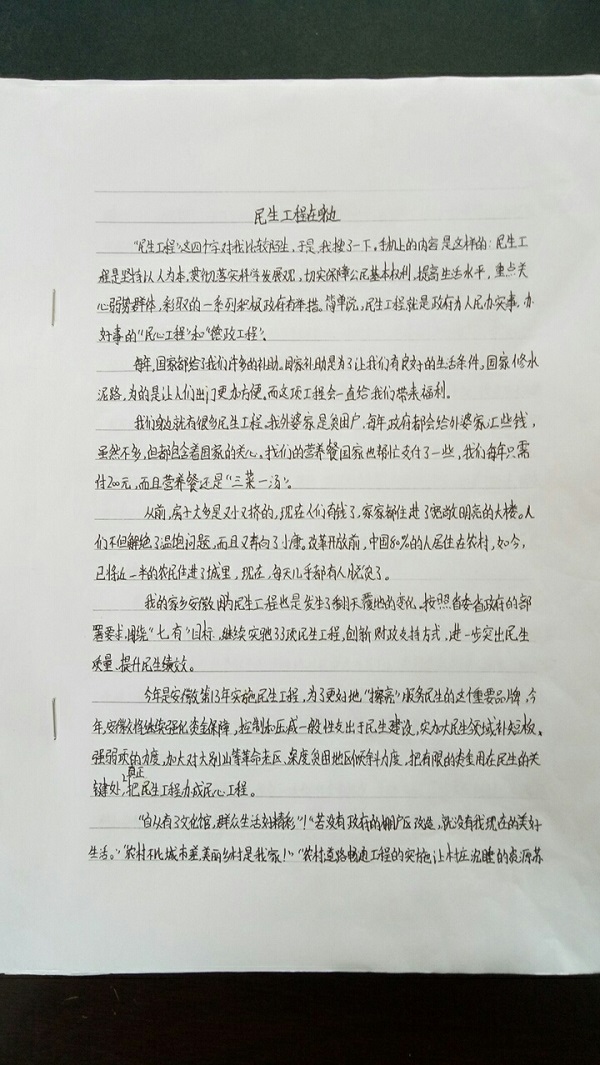 民生工程在身边
“民生工程”这四个字对我比较陌生,于是,我搜了一下,手机上的内容是这样的:民生工
程是坚持以人为本,贯彻落实科学发展观,切实保障公民基本权利,提高生活水平,重点关
心弱势群体,采取的一系列积极政府有举措。简单说,民生工程就是政府为人民办实事,办
好事的“民心工程”和“德政工程”。
每年,国家都给了我们许多的补助。国家补助是为了让我们有良好的生活条件。国家修水
泥路,为的是让人们出门更加方便。而这项工程会一直给我们带来福利。
我们身边就有很多民生工程。我外婆家是贫困户,每年政府都会给外婆家汇些钱,
虽然不多,但都包含着国家的关心。我们的营养餐国家也帮忙支付了一些,我们每年只需
付200元,而且营养餐还是“三菜一汤”。
从前,房子大多是又小又挤的,现在人们有钱了,家家都住进了宽敞明亮的大楼。人
们不但解决了温饱问题,而且又奔向了小康。改革开放前,中国80%的人居住在农村,如今,
已将近一半的农民住进了城里,现在,每天几乎都有人脱贫了。
我的家乡安徽的民生工程也是发生了翻天覆地的变化。按照省委省政府的部
署要求,围绕“七有”目标,继续实施33项民生工程,创新财政支持方式,进一步突出民生
质量、提升民生绩效。
今年是安徽第13年实施民生工程,为了更好地“擦亮”服务民生的这个重要品牌,今
年,安徽将继续强化资金保障,控制和压减一般性支出于民生建设,实加大民生领域补短板、
强弱项的力度,加大对大别山等革命老区、深度贫困地区倾斜力度,把有限的资金用在民生的关
键处,真正把民生工程办成民心工程。
“自从有了文化馆,群众生活好精彩”!“若没有政府的棚户区改造,就没有我现在的美好
生活。”“农村不比城市差,美丽乡村是我家!”“农村道路畅通工程的实施让村庄沉睡的资源苏